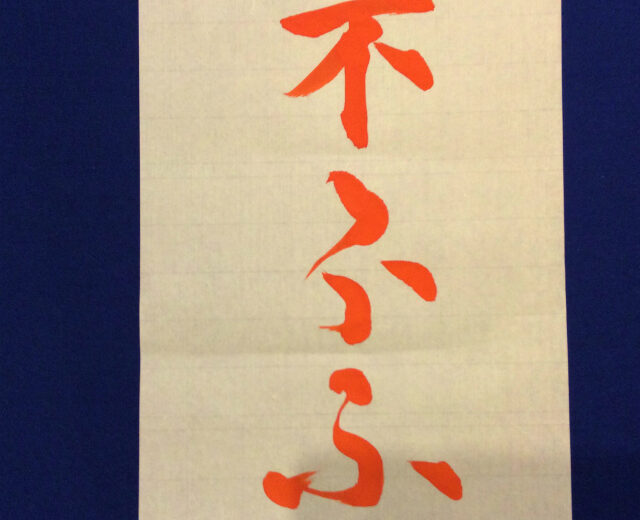 不ふふ